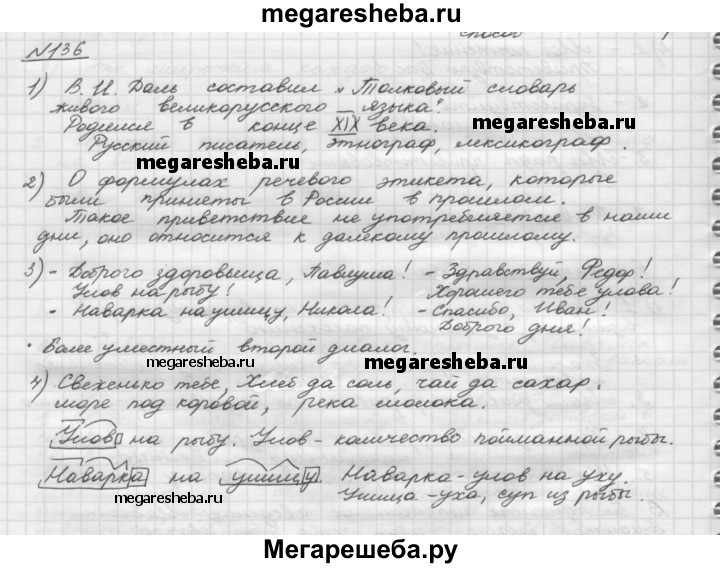 megaresheba.ru
способ
№136
1) В. И. Даль составил „Толковый словарь
живого великорусского языка".
Родился в конце XIX века.
megaresheba.ru
Русский писатель, этнограф, лексикограф.
megaresheba.ru
2) О формулах речевого этикета, которые
были приняты в России в прошлом.
Такое приветствие не употребляется в наши
дни, оно относится к далекому прошлому.
3) - Доброго здоровьица, Павлуша! - Здравствуй, Федор!
Улов на рыбу! Хорошего тебе улова!
- Наварка на ушицу, Никола! - Спасибо, Иван!
Доброго дня!
• Более уместный второй диалог.
megaresheba.ru
megaresheba.ru
4) Свеженько тебе, Хлеб да соль, чай да сахар,
море под коровой, река молока.
Улов на рыбу. Улов - количество пойманной рыбы.
Наварка на ушицу. Наварка - улов на уху.
megaresheba.ru
Ушица - уха, суп из рыбы.
Мегарешеба.ру